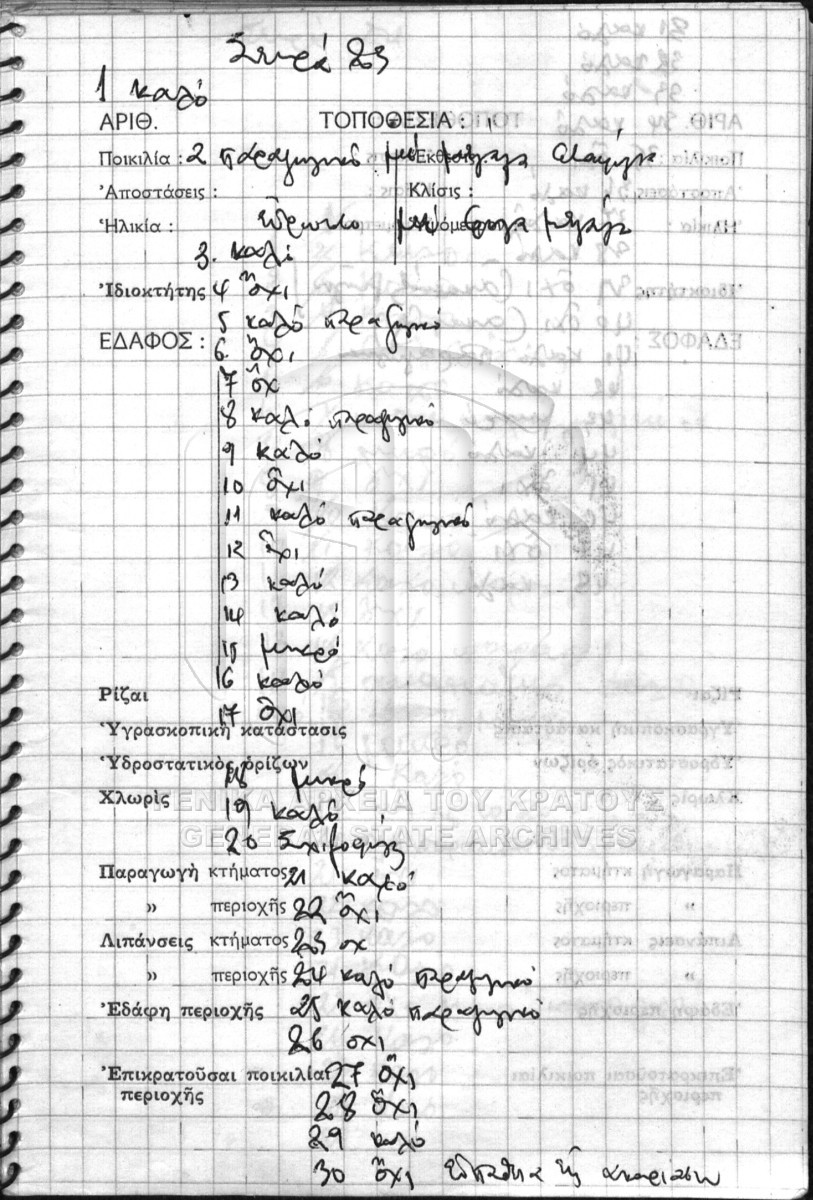 Σειρά 23
1 καλό
ΑΡΙΘ. ΤΟΠΟΘΕΣΙΑ :
Ποικιλία : 2 παραγωγικό με μεγάλα Ἔκθεσις
Ἀποστάσεις : Κλίσις :
Ἡλικία : μεγάλη
3. καλό
Ἰδιοκτήτης 4 ὄχι
5 καλό παραγωγικό
ΕΔΑΦΟΣ : 6. ὄχι
7 ὄχ
8 καλό παραγωγικό
9 καλό
10 ὄχι
11 καλό παραγωγικό
12 ὄχι
13 καλό
14 καλό
15 μικρό
16 καλό
Ρίζαι
17 ὄχι
Ὑγρασκοπικὴ κατάστασις
Ὑδροστατικὸς ὁρίζων
18 μικρό
Χλωρὶς
19 καλό
ΓΕΝΙΚΑ ΑΡΧΕΙΑ ΤΟΥ ΚΡΑΤΟΥΣ
GENERAL STATE ARCHIVES
20
Παραγωγὴ κτήματος 21 καλό
» περιοχῆς 22 ὄχι
Λιπάνσεις κτήματος 23 οχ
» περιοχῆς 24 καλό παραγωγικό
Ἐδάφη περιοχῆς 25 καλό παραγωγικό
26 οχι
Ἐπικρατοῦσαι ποικιλίαι 27 ὄχι
περιοχῆς
28 ὄχι
29 καλό
30 ὄχι